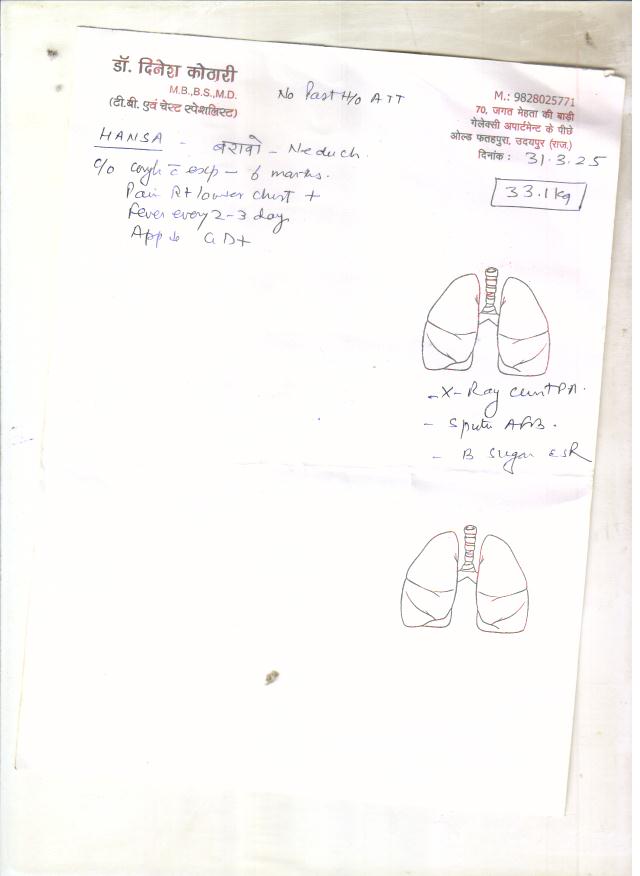 डॉ. दिनेश कोठारी
M.B.,B.S.,M.D.
(टी.बी. एवं चेस्ट स्पेशलिस्ट)
No Past H/o ATT
M.: 9828025771
70, जगत मेहता की बाड़ी
गेलेक्सी अपार्टमेन्ट के पीछे
ओल्ड फतहपुरा, उदयपुर (राज.)
दिनांक : 31.3.25
33.1kg
HANSA -
C/o cough c̄ exp - 6 months.
Pain Rt lower chest +
Fever every 2-3 day
App ↓ GD+
- X-Ray chest PA.
- Sputum AFB.
- B Sugar ESR